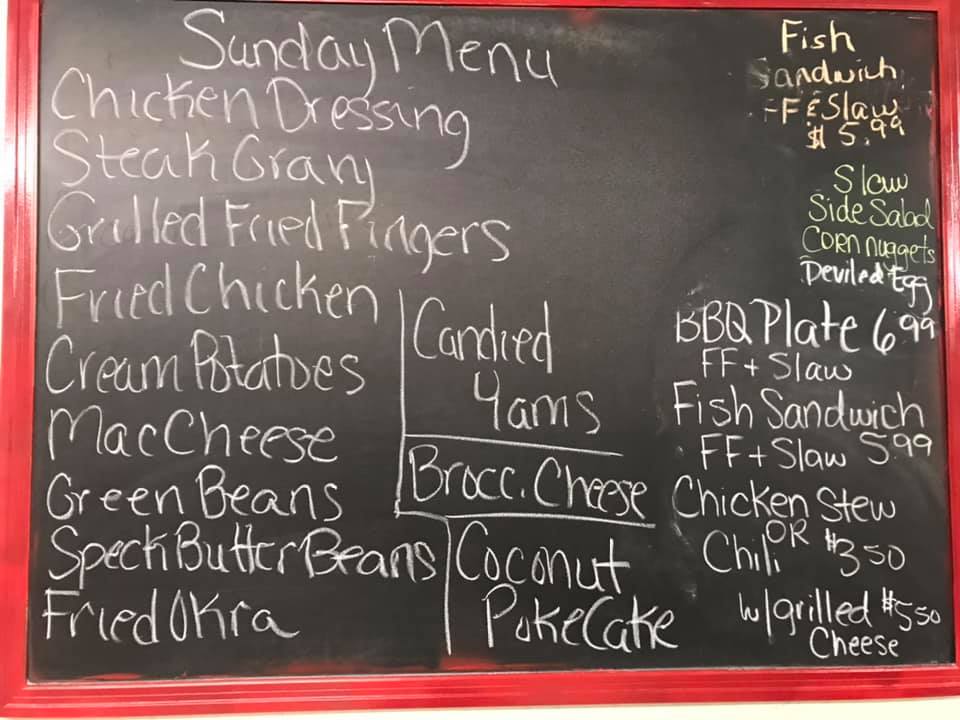 Sunday Menu
Chicken Dressing
Steak Gravy
Grilled Fried Fingers
Fried Chicken
Cream Potatoes
Mac Cheese
Green Beans
Speck Butter Beans
Fried Okra
Candied
Yams
Brocc. Cheese
Coconut
Poke Cake
Fish
Sandwich
FF & Slaw
$5.99
Slaw
Side Salad
Corn nuggets
Deviled Egg
BBQ Plate 6.99
FF + Slaw
Fish Sandwich
FF + Slaw 5.99
Chicken Stew
OR
Chili $3.50
w/grilled $5.50
Cheese